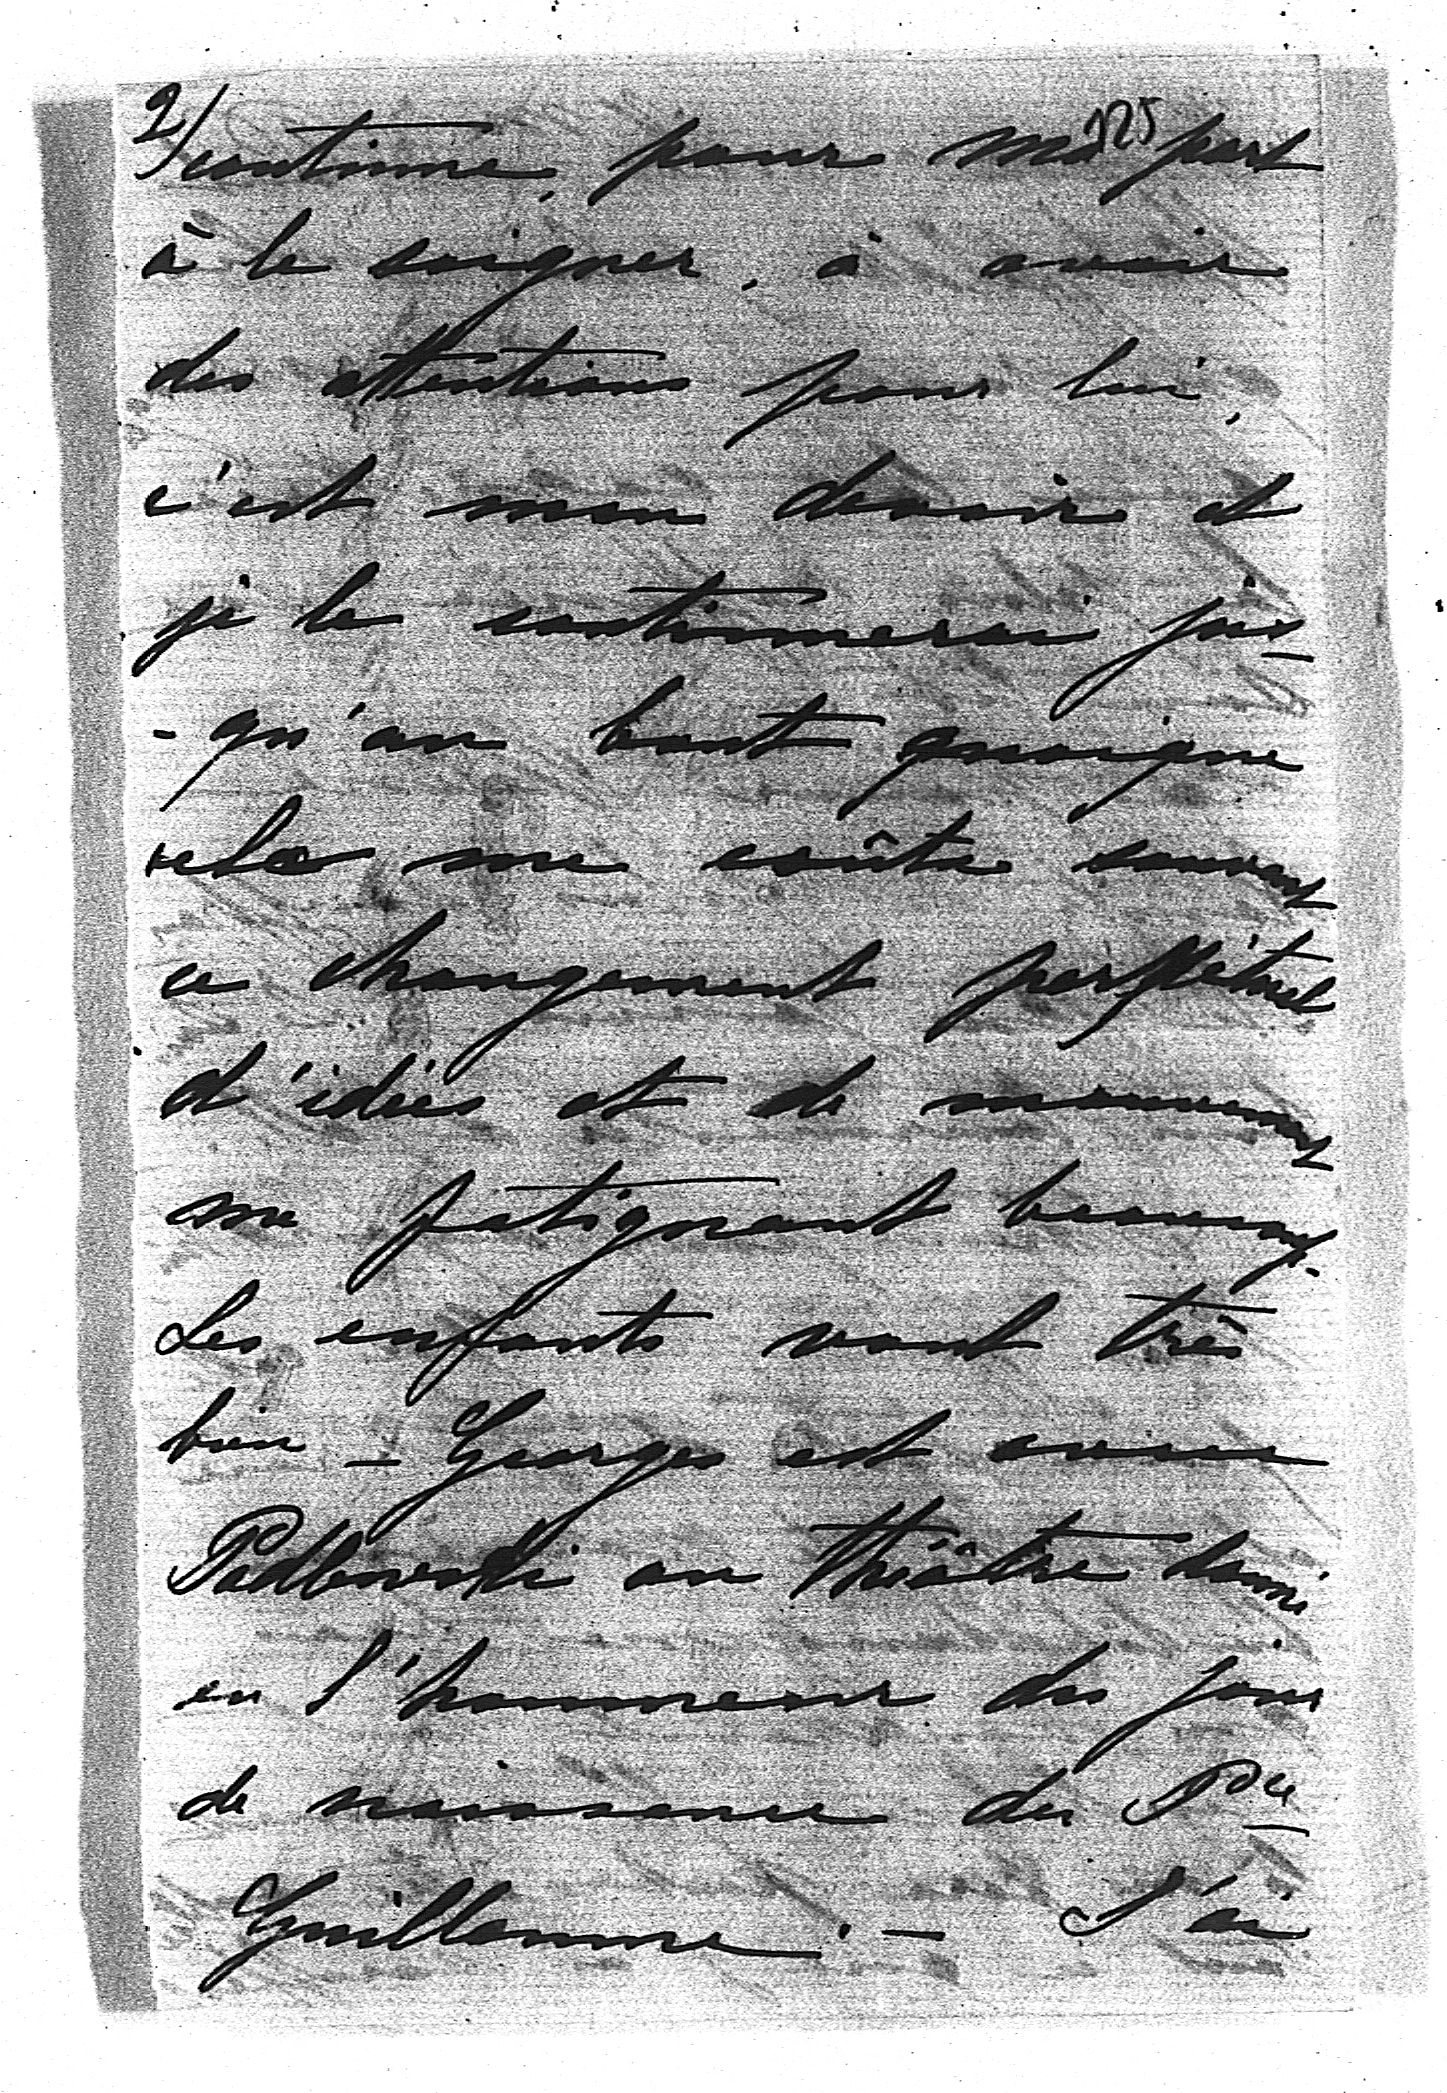 2/ 125
continue, pour ma part
à le soigner, à avoir
des attentions pour lui,
c'est mon devoir et
je le continuerai jus
- qu'au bout quoique
cela me coûte souvent
ce changement perpétuel
d'idées et de mouvement
me fatiguant beaucoup.
Les enfants vont très
bien - Georges est avec
Padlewski au théâtre donné
en l'honneur du jour
de naissance du Pce
Guillaume. - J'ai